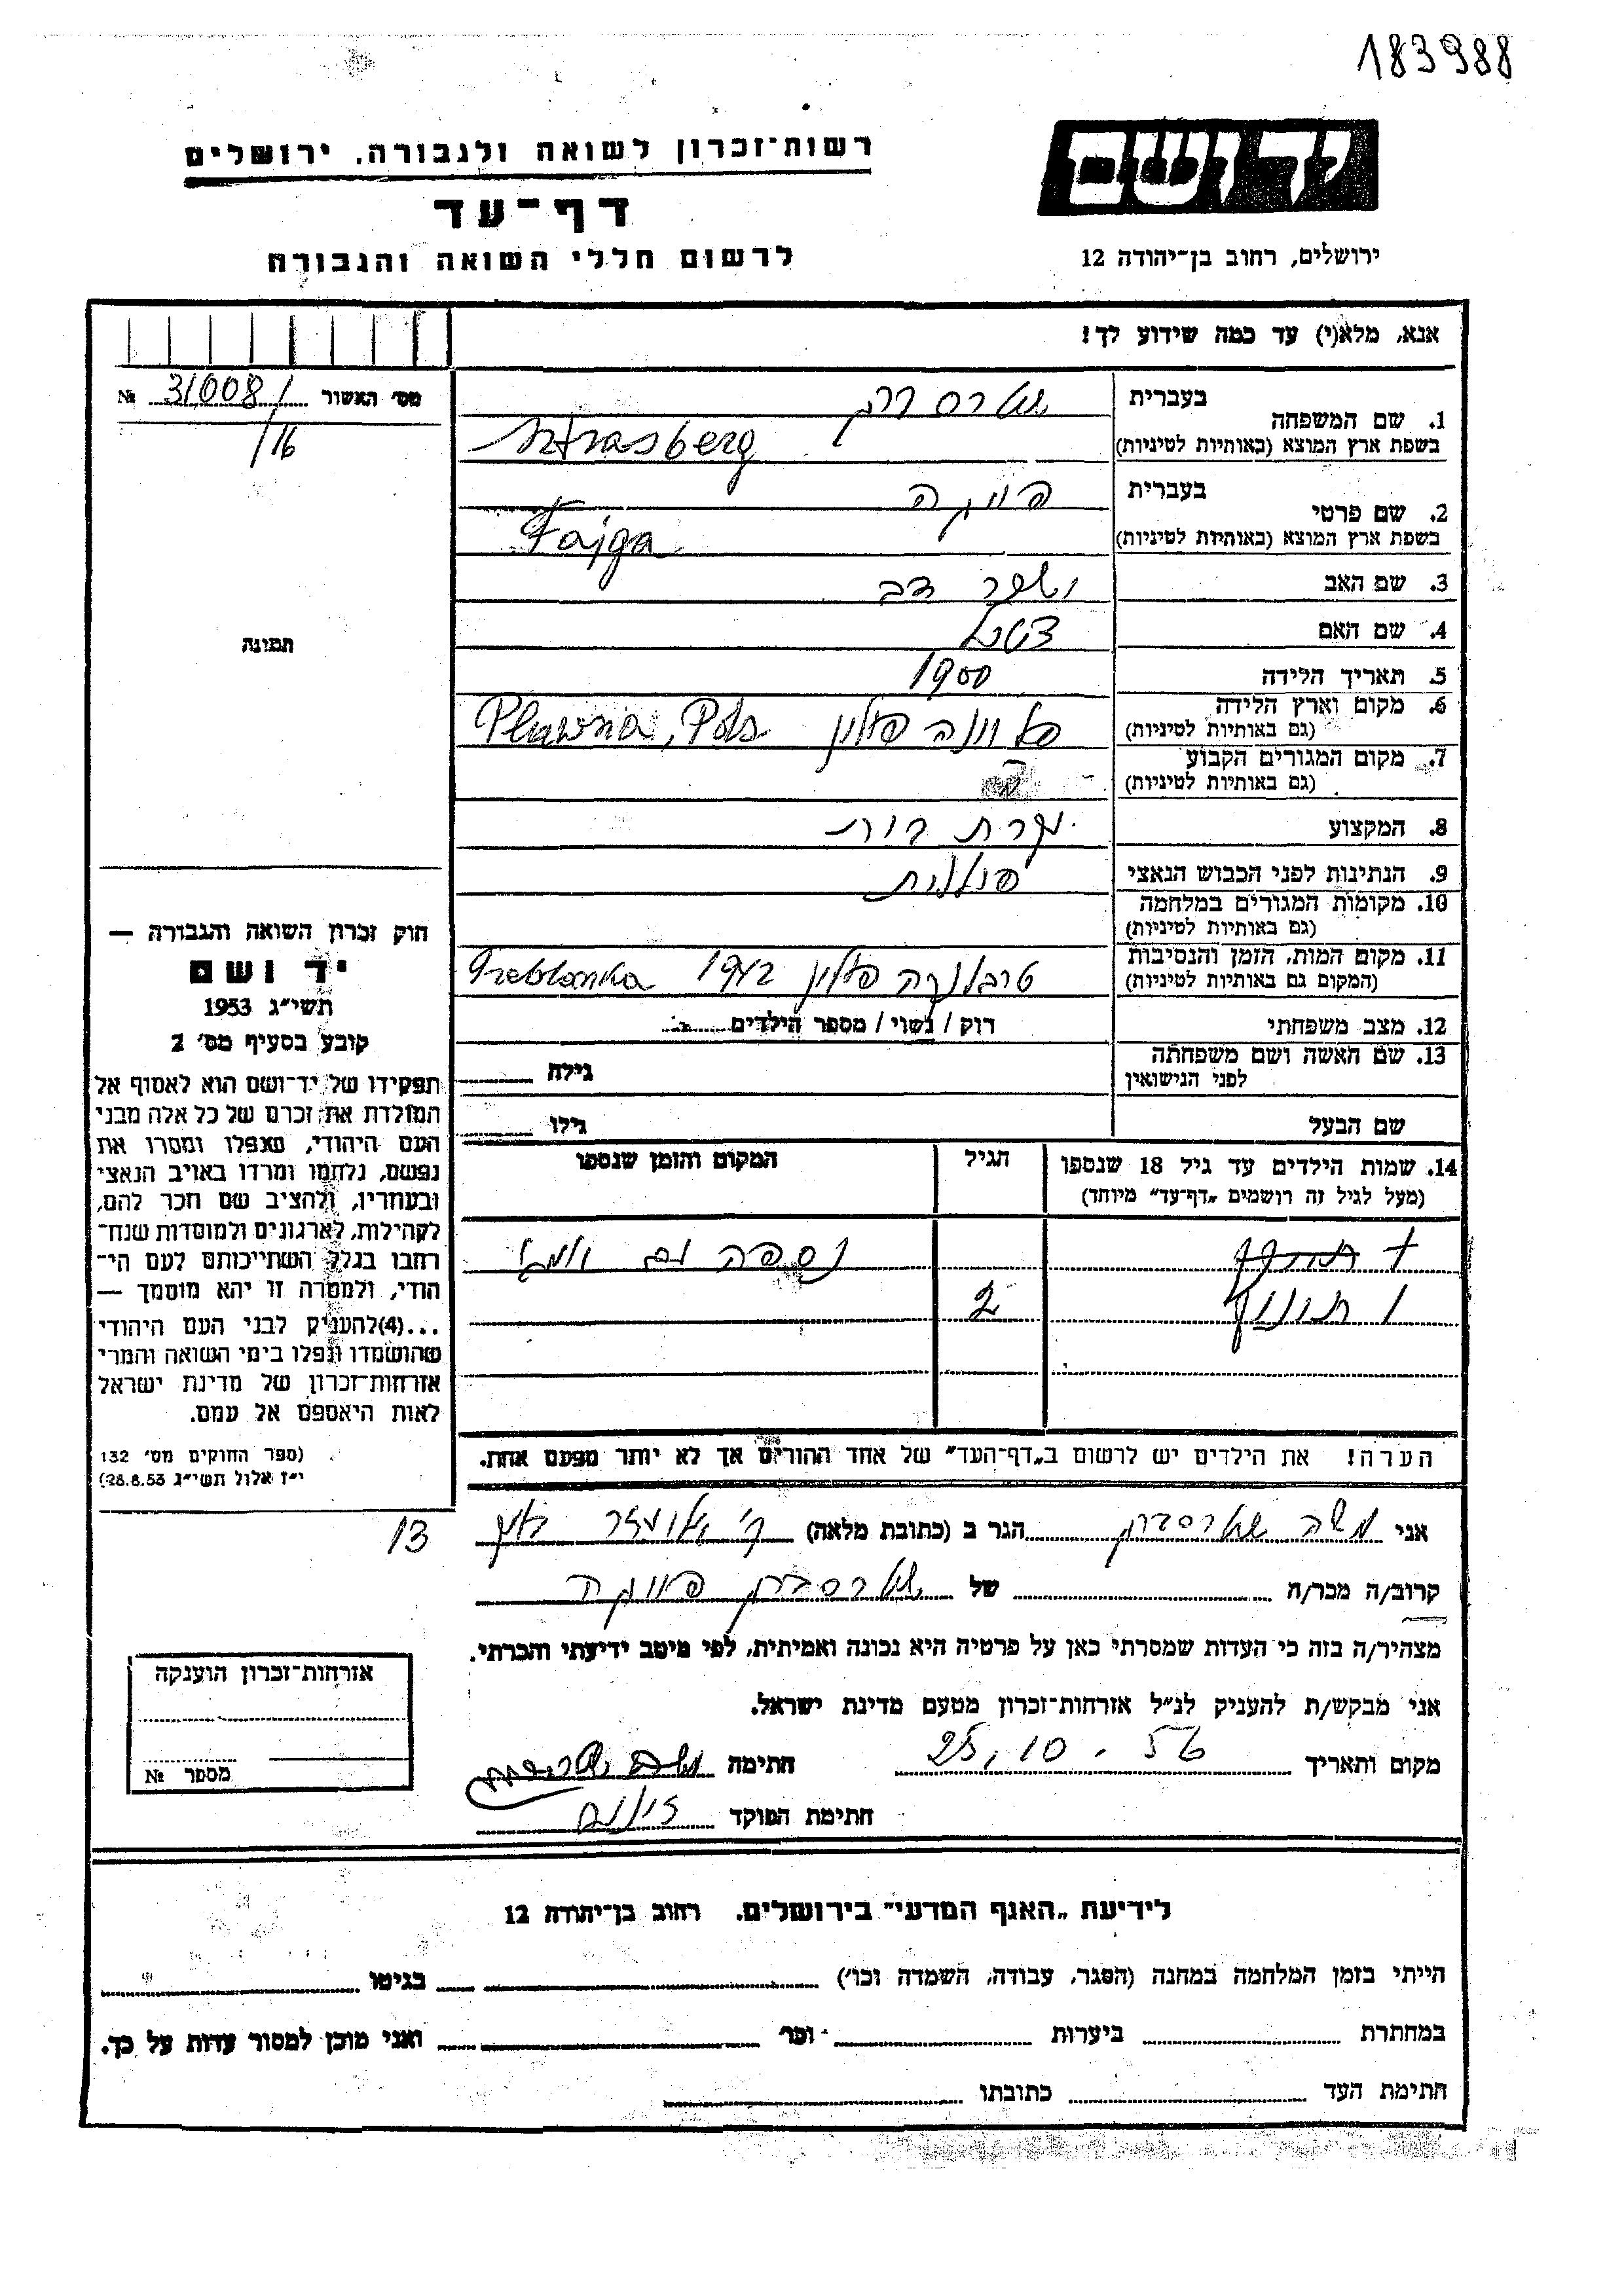 183988
יד ושם
רשות־זכרון לשואה ולגבורה. ירושלים
דף־עד
ירושלים, רחוב בן־יהודה 12
לרשום חללי השואה והגבורה
אנא, מלא(י) עד כמה שידוע לך!
מס׳ האשור 31008/ №
/16
1. שם המשפחה בעברית שטרסברג
בשפת ארץ המוצא (באותיות לטיניות) Sztrasberg
2. שם פרטי בעברית פייגה
בשפת ארץ המוצא (באותיות לטיניות) Fajga
3. שם האב דב
4. שם האם
5. תאריך הלידה 1900
6. מקום וארץ הלידה פולין
(גם באותיות לטיניות) Pluwna, Pols
7. מקום המגורים הקבוע
(גם באותיות לטיניות)
8. המקצוע עקרת בית
9. הנתינות לפני הכבוש הנאצי פולנית
10. מקומות המגורים במלחמה
(גם באותיות לטיניות)
11. מקום המות, הזמן והנסיבות טרבלינקה פולין 1942
(המקום גם באותיות לטיניות) Treblanka
12. מצב משפחתי רוק / נשוי / מספר הילדים
13. שם האשה ושם משפחתה
לפני הנישואין גילה
שם הבעל גילו
14. שמות הילדים עד גיל 18 שנספו הגיל המקום והזמן שנספו
(מעל לגיל זה רושמים „דף־עד״ מיוחד)
נספה
2
הערה! את הילדים יש לרשום ב„דף־העד״ של אחד ההורים אך לא יותר מפעם אחת.
תמונה
חוק זכרון השואה והגבורה —
יד ושם
תשי״ג 1953
קובע בסעיף מס׳ 2
תפקידו של יד־ושם הוא לאסוף אל
המולדת את זכרם של כל אלה מבני
העם היהודי, שנפלו ומסרו את
נפשם, נלחמו ומרדו באויב הנאצי
ובעוזריו, ולהציב שם וזכר להם,
לקהילות, לארגונים ולמוסדות שנח־
רחבו בגלל השתייכותם לעם הי־
הודי, ולמטרה זו יהא מוסמך —
...(4)להעניק לבני העם היהודי
שהושמדו ונפלו בימי השואה והמרי
אזרחות־זכרון של מדינת ישראל
לאות היאספם אל עמם.
(ספר החוקים מס׳ 132
י״ז אלול תשי״ג 28.8.53)
13
אני משה שטרסברג הגר ב (כתובת מלאה) ק׳
קרוב/ה מכר/ה של שטרסברג פייגה
מצהיר/ה בזה כי העדות שמסרתי כאן על פרטיה היא נכונה ואמיתית, לפי מיטב ידיעתי והכרתי.
אני מבקש/ת להעניק לנ״ל אזרחות־זכרון מטעם מדינת ישראל.
מקום ותאריך 25.10.56 חתימה
חתימת הפוקד
אזרחות־זכרון הוענקה
מספר №
לידיעת „האגף המדעי״ בירושלים. רחוב בן־יהודה 12
הייתי בזמן המלחמה במחנה (הסגר, עבודה, השמדה וכו׳) בגיטו
במחתרת ביערות וכו׳ ואני מוכן למסור עדות על כך.
חתימת העד כתובתו